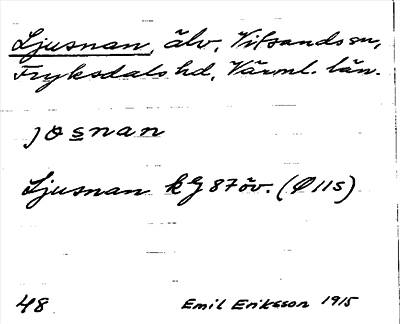 Ljusnan, älv, Vitsands sn,
Fryksdals hd, Värml. län.
josnan
Ljusnan kG 87 öv. (Ø 115)
48
Emil Eriksson 1915